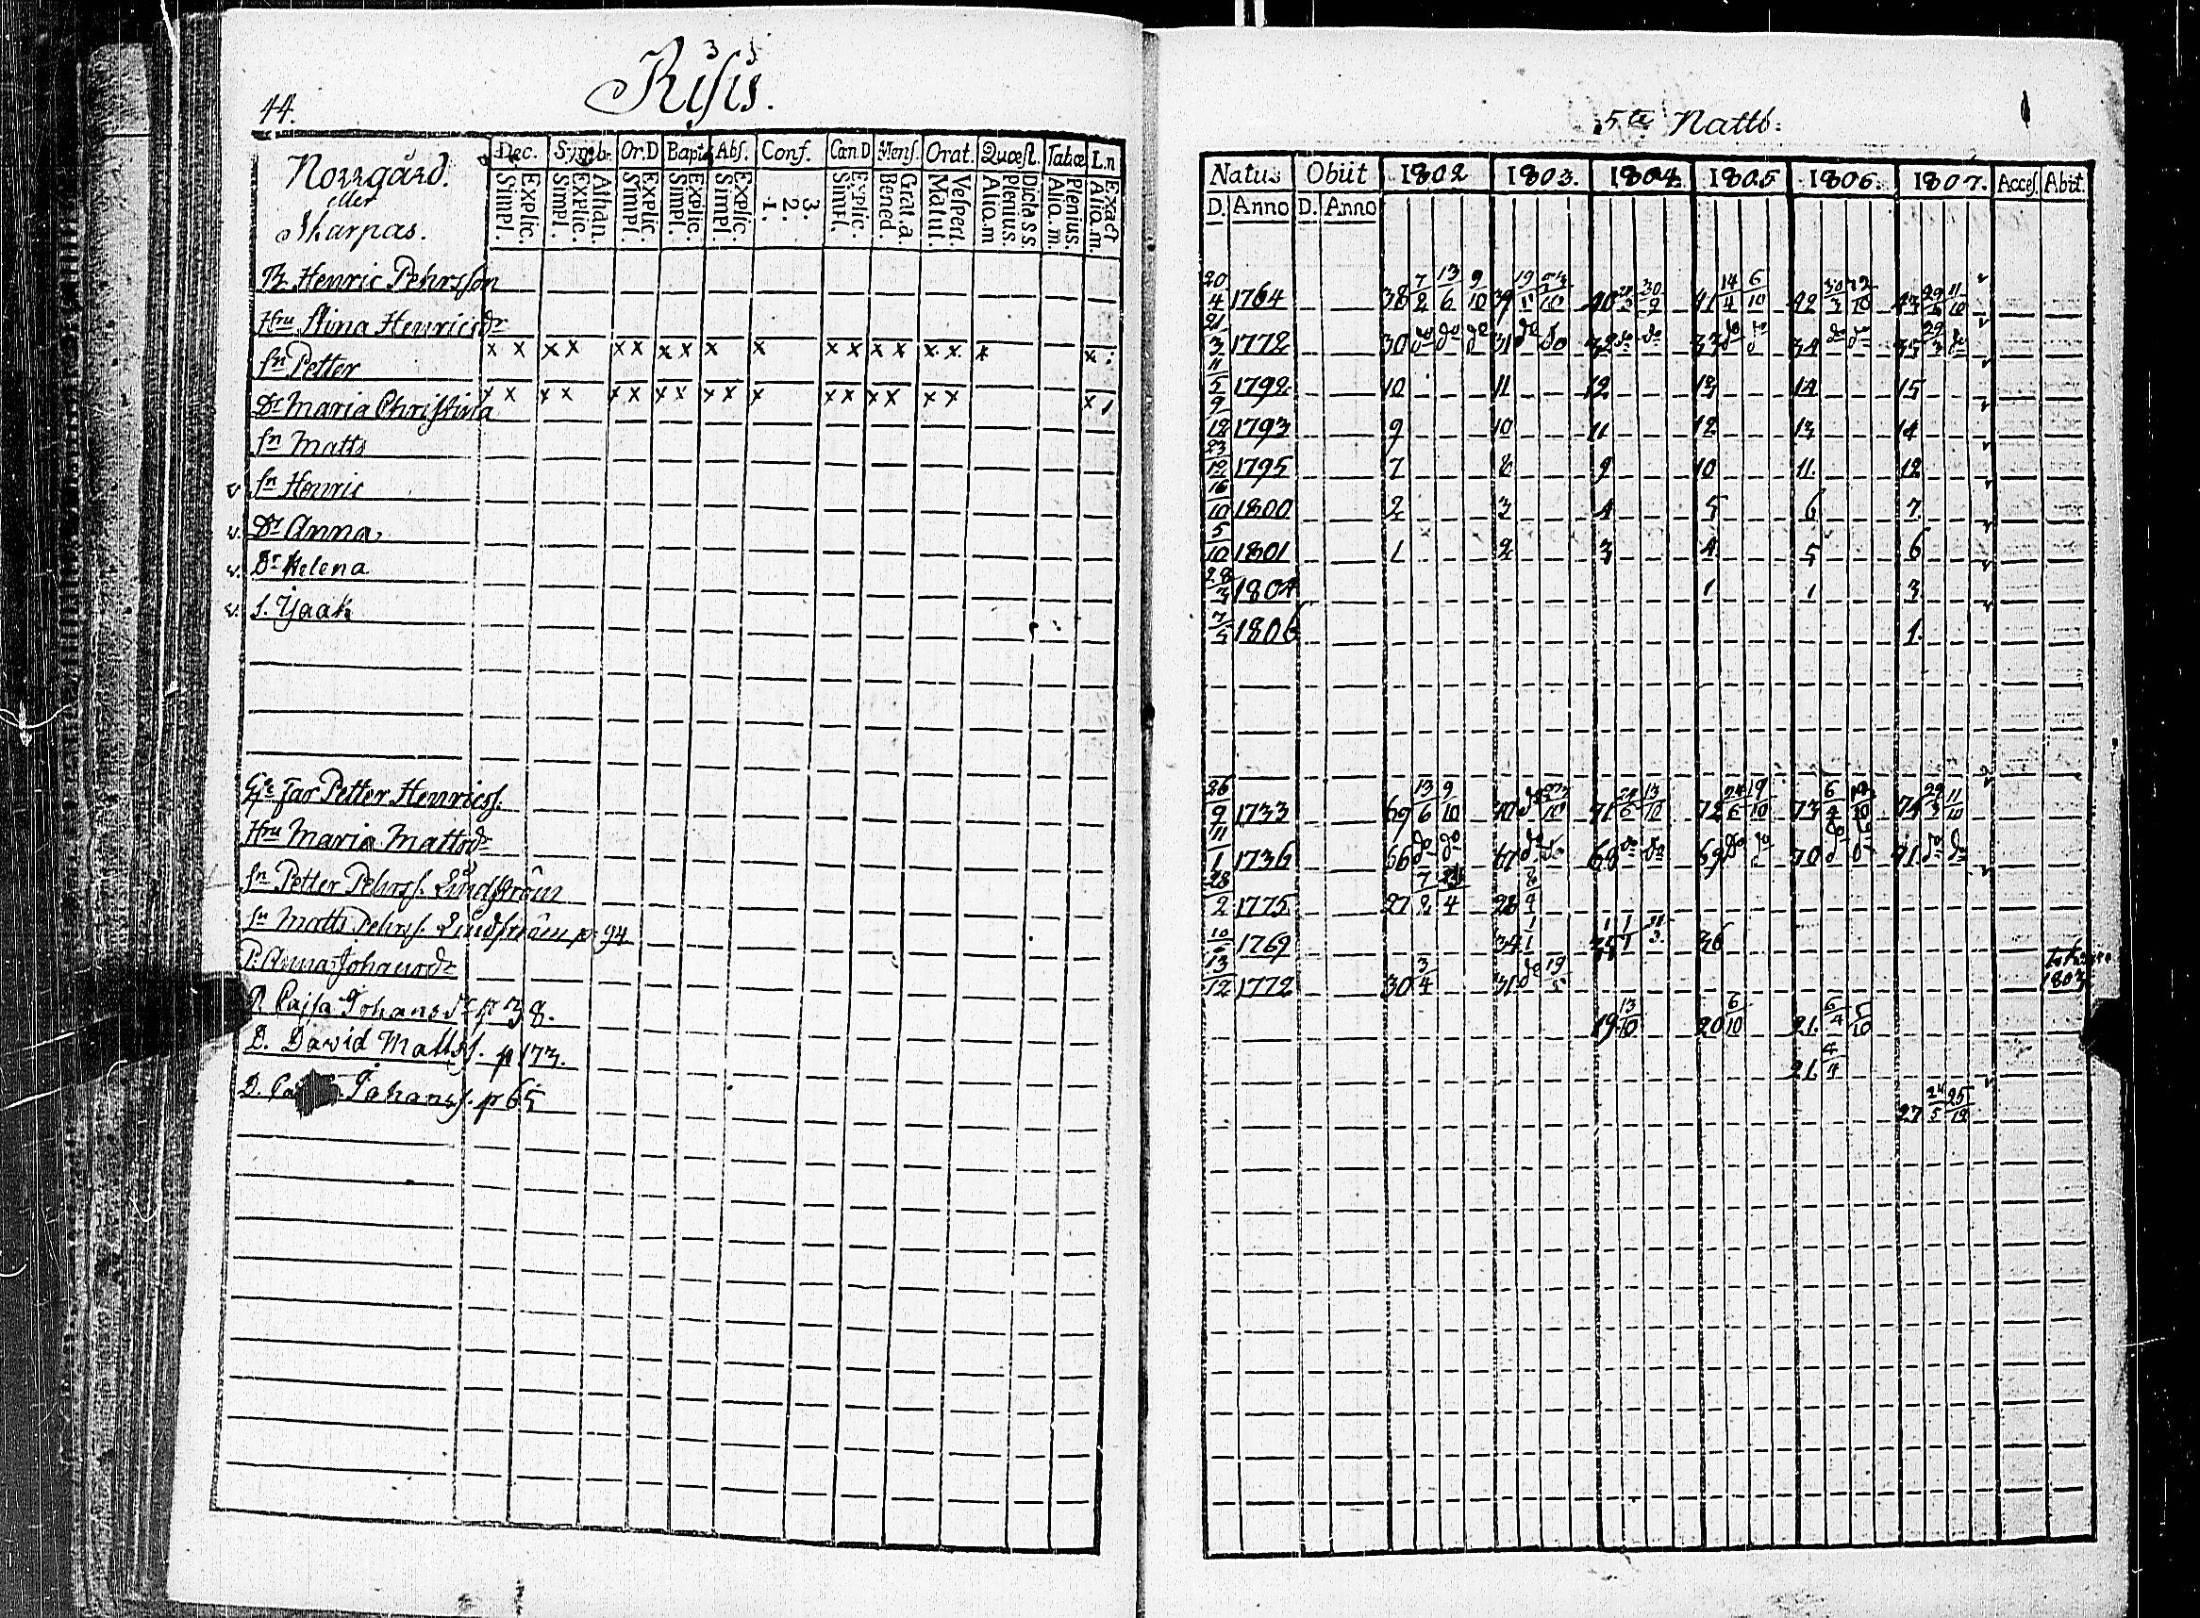 44.
Risis.
Norrgård.
eller
Skarpas.
Dec. Symb. Or.D Bapt. Abs. Conf. Can D Mens. Orat. Quæst. Tabæ L.n
Simpl. Explic. Simpl. Explic. Athan. Simpl. Explic. Simpl. Explic. Simpl. Explic. 1. 2. 3. Simpl. Explic. Bened. Grat. a. Matut. Vespert. Alia.m Plenius. Dicta s s Alia.m. Plenius. Alia.m. Exact
Henric Pehrsson
Hru Stina Henricsdr
Sn Petter x x x x x x x x x x x x x x x x
Dr Maria Christina x x x x x x x x x x x x x x x x
Sn Matts
Sn Henric
Dr Anna
Dr Helena
S. Isaak
Far Petter Henricss.
Hru Maria Mattsdr
Sn Petter Pehrss. Lindström
Sn Matts Pehrss. Lindström p. 94
P. Anna Johansdr
P. Cajsa Johansdr p 38.
D. David Matss. p 173.
D. Johanss. p 65
5te Natto:
Natus Obiit 1802 1803. 1804. 1805 1806. 1807. Acces. Abit.
D. Anno D. Anno
20/4 1764 38 7/2 13/6 9/10 39 40 41 14/4 6/10 42 43 29/3 11/10
21/3 1772 30 do do do 31 do do 32 do do 33 do do 34 do do 35 29/3 do
11/5 1792 10 11 12 13 14 15
9/12 1793 9 10 11 12 13 14
23/12 1795 7 8 9 10 11 12
16/10 1800 2 3 4 5 6 7
5/10 1801 1 2 3 4 5 6
28/3 1804 1 1 3
7/5 1806 1.
26/9 1733 69 13/6 9/10 70 71 13/10 72 19/10 73 74 29/3 11/10
11/1 1736 66 do do 67 do do 68 do do 69 do do 70 do do 71 do do
28/2 1775 27 7/2 28
10/6 1769 34 1/1 35 1/1 36
13/12 1772 30 3/4 31 do 19/5 1803
19 13/10 20 6/10 21. 6/4 5/10
21. 4/4
27 25/12